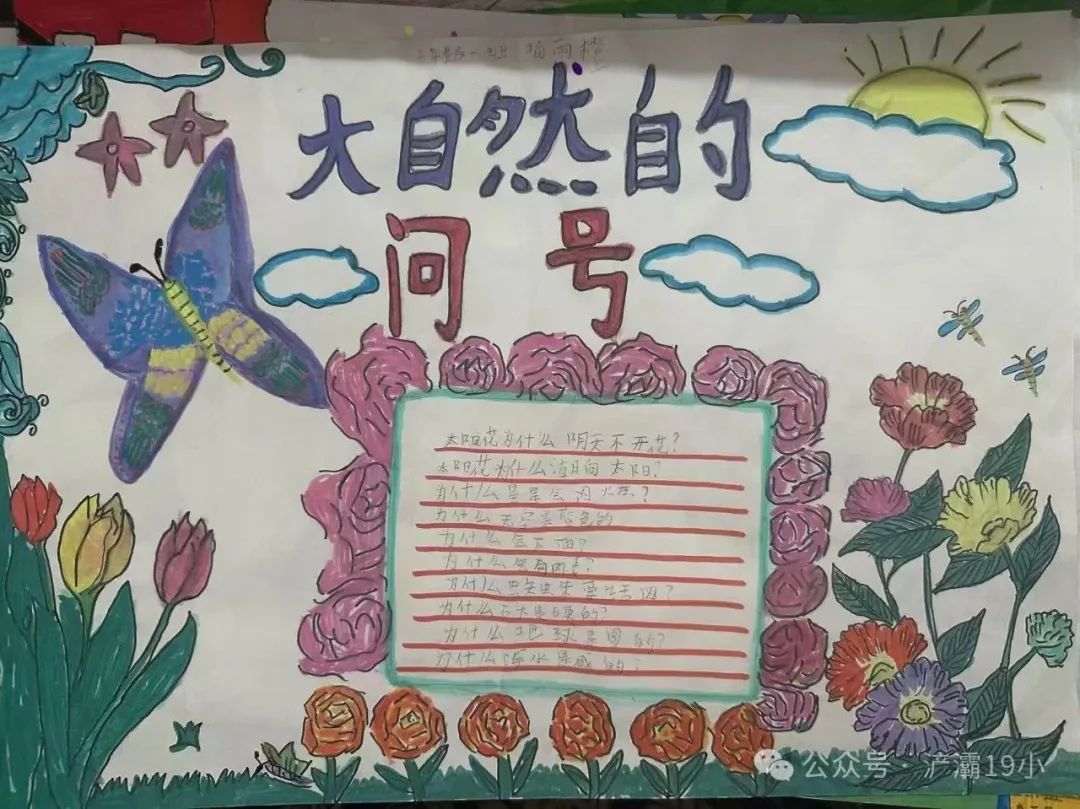 杨雨橙
大自然的
问号
太阳花为什么阴天不开花?
太阳花为什么海月向太阳?
为什么星星会闪烁?
为什么天空是蓝色的
为什么
为什么会有雨?
为什么蜘蛛要结网?
为什么石头是硬的?
为什么地球是圆的?
为什么海水是咸的?
公众号·浐灞19小